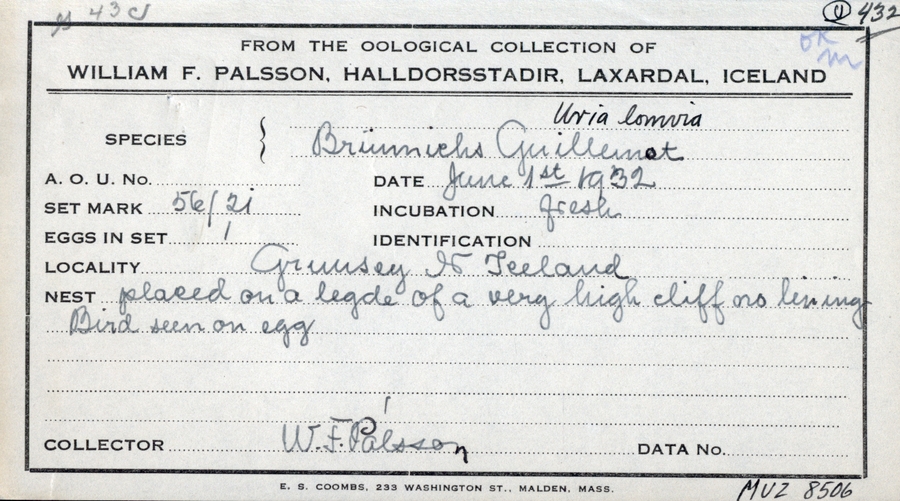 43
① 432
OK
FROM THE OOLOGICAL COLLECTION OF
WILLIAM F. PALSSON, HALLDORSSTADIR, LAXARDAL, ICELAND
Uria lomvia
SPECIES Brünnichs Guillemot
A. O. U. No. DATE June 1st 1932
SET MARK 56/21 INCUBATION fresh
EGGS IN SET 1 IDENTIFICATION
LOCALITY Grimsey N Iceland
NEST placed on a legde of a very high cliff no lining
Bird seen on egg
COLLECTOR W. F. Pálsson DATA No.
E. S. COOMBS, 233 WASHINGTON ST., MALDEN, MASS.
MVZ 8506